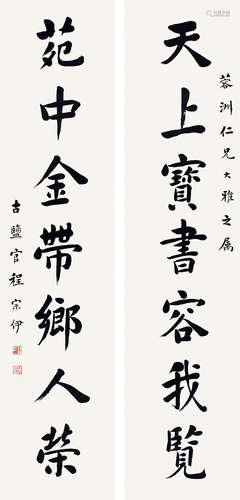 蓉洲仁兄大雅之属
天上寳書容我覧
苑中金帶鄉人榮
古鹽官程宗伊